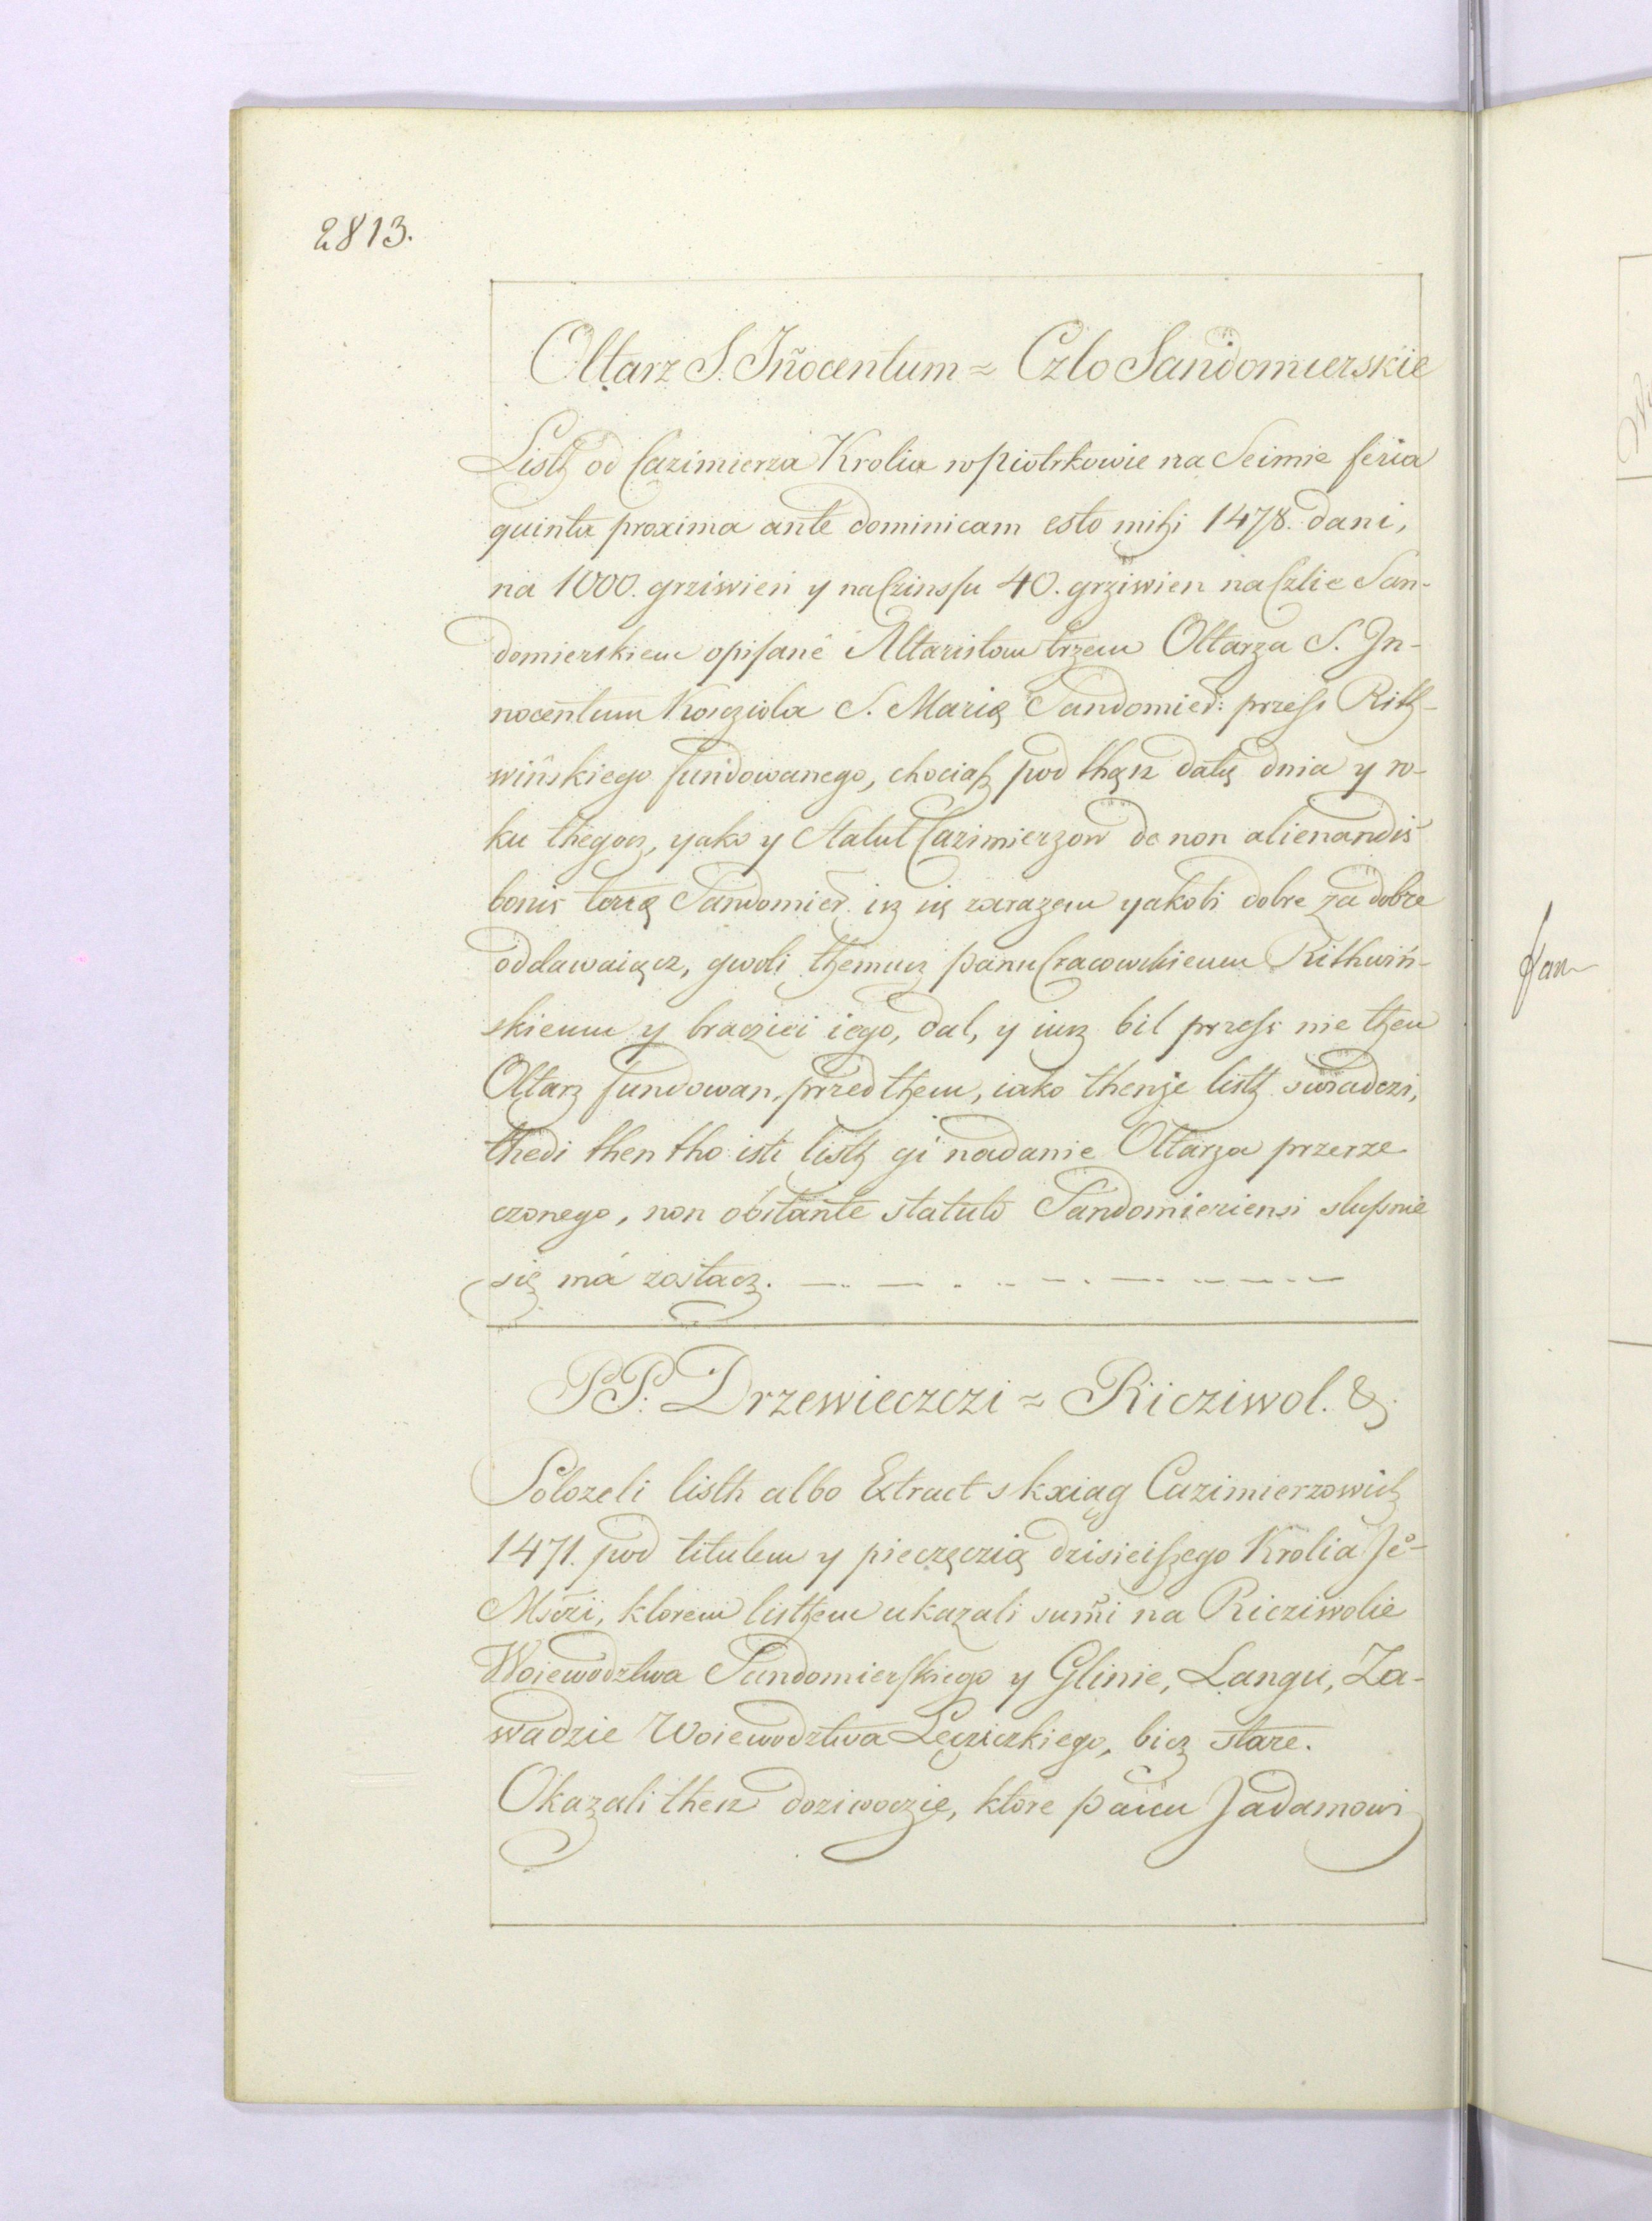 2813.
Oltarz S. Iñocentum = Czlo Sandomierskie
Listh od Cazimierza Krolia w piotrkowie na Seimie feria
quinta proxima ante dominicam esto mihi 1478. dani,
na 1000. grziwien y na Czinssu 40. grziwien na Czlie San-
domierskiem opisané Altaristom trzem Oltarza S. In-
nocentum Koscziola S. Marię Sandomier: przess Rith-
wińskiego fundowanego, chociaß pod thąsz datą dnia y ro-
ku thegosz, yako y Statut Cazimierzow de non alienandis
bonis terrę Sandomier. isz się zarazem yakobi dobre za dobre
oddawaiącz, gwoli themusz panu Cracowskiemu Rithwiń-
skiemu y braciei iego, dal, y iusz bil przess nie then
Oltarz fundowan, przedthem, iako thenże listh swiadczi,
thedi then tho isti listh gi nadanie Oltarza przerze
czonego, non obstante statuto Sandomiriensi slußnie
się má zostacz.
PP. Drzewieczczi = Ricziwol. &.
Polozeli listh albo Extract s kxiąg Cazimierzowich
1471. pod titulem y pieczęczią dzisieißego Krolia Je-
Msczi, ktorem listhem ukazali summi na Ricziwolie
Woiewodztwa Sandomierskiego y Glinie, Langu, Za-
wadzie Woiewodztwa Lęcziczkiego, bicz stare.
Okazali thesz doziwoczie, ktore panu Jadamowi